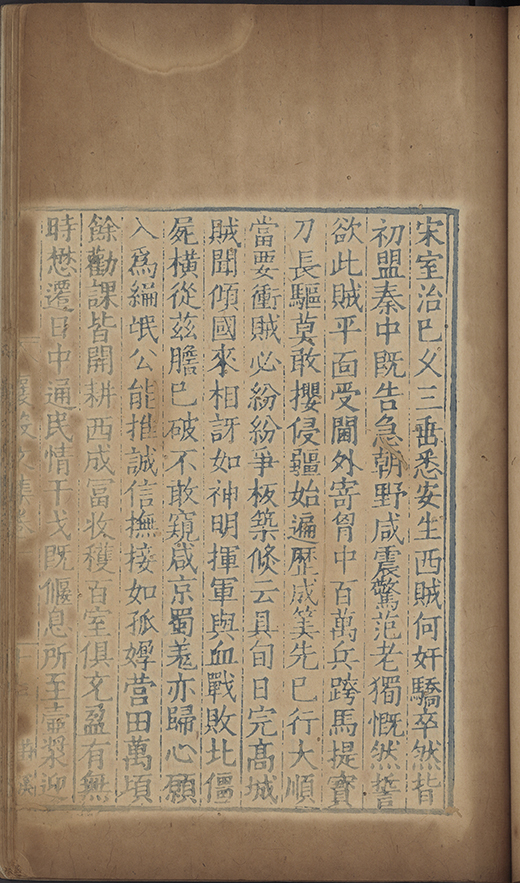 宋室治已久三垂悉安生西賊何奸驕卒然背
初盟秦中既告急朝野咸震驚范老獨慨然誓
欲此賊平面受閫外寄胷中百萬兵跨馬提寳
刀長驅莫敢攖侵疆始遍歷成筭先已行大順
當要衝賊必紛紛爭板築倐云具旬日完高城
賊聞傾國來相訝如神明揮軍與血戰敗北僵
屍橫從兹膽已破不敢窺咸京蜀羌亦歸心願
入爲編氓公能推誠信撫接如孤嫈营田萬頃
餘勸課皆開耕西成冨收穫百室俱充盈有無
時懋遷日中通民情干戈既偃息所至壷漿迎